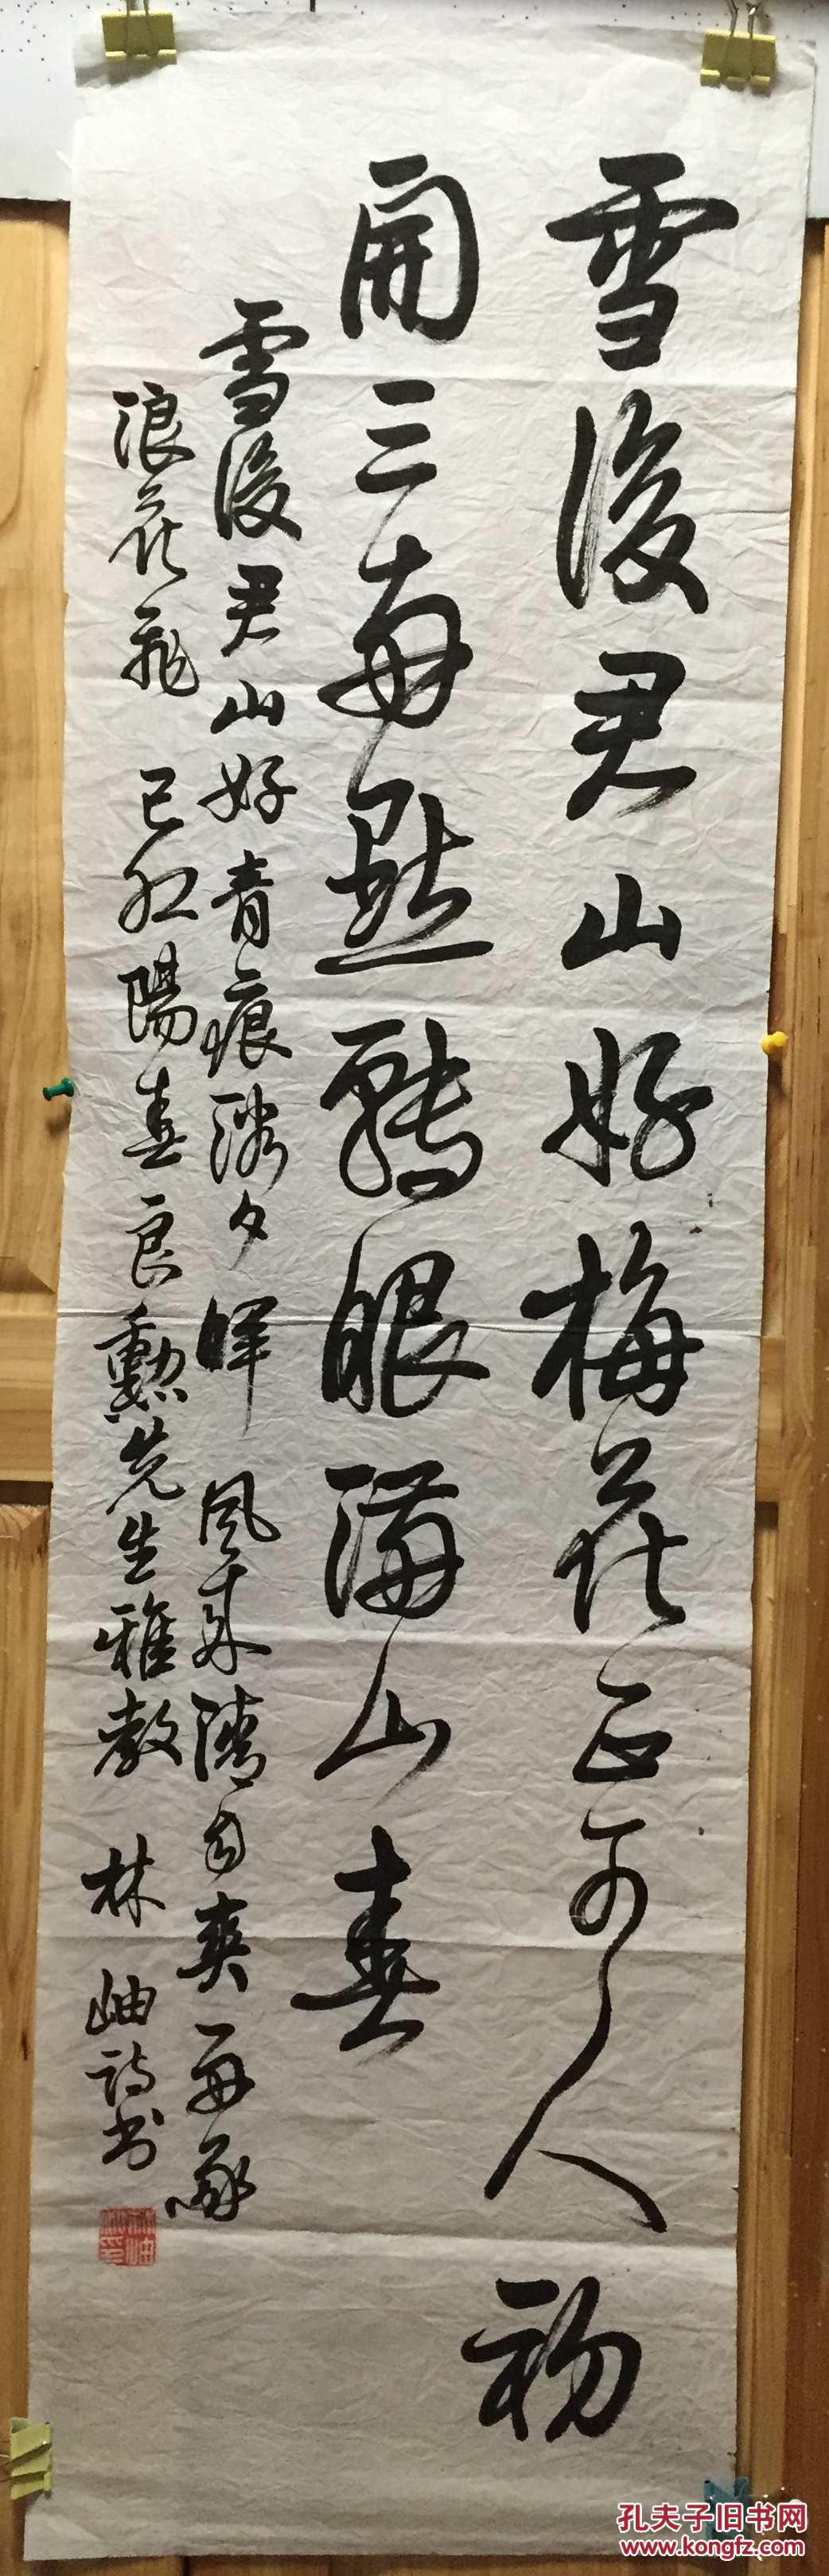 雪後君山好梅花正可人初
開三兩點轉眼滿山春
雪後君山好青痕潑夕暉風來陣自爽
浪花飛 己巳陽春良勳先生雅教 林岫詩书
孔夫子旧书网
www.kongfz.com